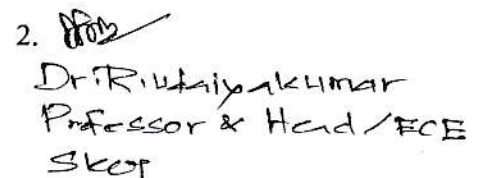 2.
Dr.R.Udaiyakumar
Professor & Head/ECE
SKCT